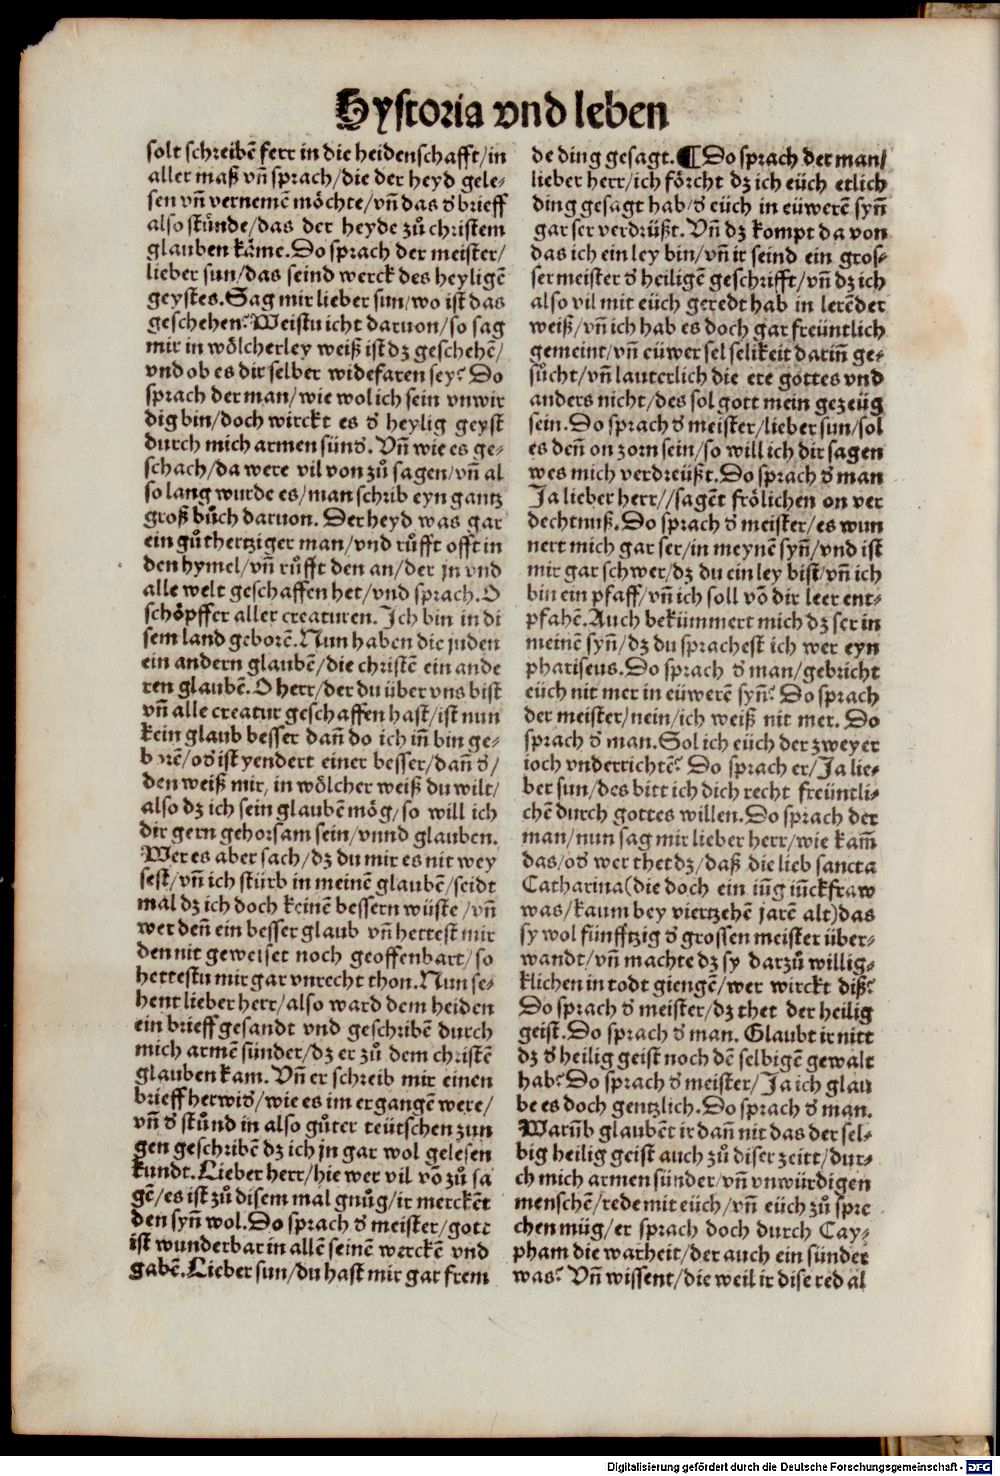 Hystoria vnd leben
solt schreibē ferr in die heidenschafft/in
aller maß vn̄ sprach/die der heyd gele⸗
sen vn̄ vernemē möchte/vn̄ das ď brieff
also stůnde/das der heyde zů christem
glauben käme. Do sprach der meister/
lieber sun/das seind werck des heyligē
geystes. Sag mir lieber sun/wo ist das
geschehen? Weistu icht daruon/so sag
mir in wölcherley weiß ist dz geschehē/
vnd ob es dir selber widefaren sey? Do
sprach der man/wie wol ich sein vnwir
dig bin/doch wirckt es ď heylig geyst
durch mich armen sünď. Vn̄ wie es ge⸗
schach/da were vil von zů sagen/vn̄ al
so lang wurde es/man schrib eyn gantz
groß bůch daruon. Der heyd was gar
ein gůthertziger man/vnd růfft offt in
den hymel/vn̄ růfft den an/der jn vnd
alle welt geschaffen het/vnd sprach. O
schöpffer aller creaturen. Ich bin in di
sem land geborē. Nun haben die juden
ein andern glaubē/die christē ein ande
ren glaubē. O herr/der du über vns bist
vn̄ alle creatur geschaffen hast/ist nun
kein glaub besser dan̄ do ich in̄ bin ge⸗
borē/oď ist yendert einer besser/dan̄ ď/
den weiß mir, in wölcher weiß du wilt/
also dz ich sein glaubē mög/so will ich
dir gern gehorsam sein/vnnd glauben.
Wer es aber sach/dz du mir es nit wey
sest/vn̄ ich stürb in meinē glaubē/seidt
mal dz ich doch keinē bessern wüste/vn̄
wer den̄ ein besser glaub vn̄ hettest mir
den nit geweiset noch geoffenbart/so
hettestu mir gar vnrecht thon. Nun se⸗
hent lieber herr/also ward dem heiden
ein brieff gesandt vnd geschribē durch
mich armē sünder/dz er zů dem christē
glauben kam. Vn̄ er schreib mir einen
brieff herwiď/wie es im ergangē were/
vn̄ ď stůnd in also gůter teütschen zun
gen geschribē dz ich jn gar wol gelesen
kundt. Lieber herr/hie wer vil vō zů sa
gē/es ist zů disem mal gnůg/ir merckēt
den syn̄ wol. Do sprach ď meister/gott
ist wunderbar in allē seinē werckē vnd
gabē. Lieber sun/du hast mir gar frem
de ding gesagt. ¶ Do sprach der man/
lieber herr/ich förcht dz ich eüch etlich
ding gesagt hab/ď eüch in eüwerē syn̄
gar ser verdrüßt. Vn̄ dz kompt da von
das ich ein ley bin/vn̄ ir seind ein gros⸗
ser meister ď heiligē geschrifft/vn̄ dz ich
also vil mit eüch geredt hab in lerēder
weiß/vn̄ ich hab es doch gar freüntlich
gemeint/vn̄ eüwer sel selikeit darin̄ ge⸗
sůcht/vn̄ lauterlich die ere gottes vnd
anders nicht/des sol gott mein gezeüg
sein. Do sprach ď meister/lieber sun/sol
es den̄ on zorn sein/so will ich dir sagen
wes mich verdreüßt. Do sprach ď man
Ja lieber herr//sagēt frölichen on ver
dechtnuß. Do sprach ď meister/es wun
nert mich gar ser/in meynē syn̄/vnd ist
mir gar schwer/dz du ein ley bist/vn̄ ich
bin ein pfaff/vn̄ ich soll vō dir leer ent⸗
pfahē. Auch bekümmert mich dz ser in
meinē syn̄/dz du sprachest ich wer eyn
phariseus. Do sprach ď man/gebricht
eüch nit mer in eüwerē syn̄? Do sprach
der meister/nein/ich weiß nit mer. Do
sprach ď man. Sol ich eüch der zweyer
ioch vnderrichtē? Do sprach er/Ja lie⸗
ber sun/des bitt ich dich recht freüntli⸗
chē durch gottes willen. Do sprach der
man/nun sag mir lieber herr/wie kam̄
das/oď wer thet dz/daß die lieb sancta
Catharina(die doch ein iūg iūckfraw
was/kaum bey viertzehē jarē alt)das
sy wol fünfftzig ď grossen meister über⸗
wandt/vn̄ machte dz sy darzů willig⸗
klichen in todt giengē/wer wirckt diß?
Do sprach ď meister/dz thet der heilig
geist. Do sprach ď man. Glaubt ir nitt
dz ď heilig geist noch dē selbigē gewalt
hab? Do sprach ď meister/Ja ich glau
be es doch gentzlich. Do sprach ď man.
Warūb glaubēt ir dan̄ nit das der sel⸗
big heilig geist auch zů diser zeitt/dur⸗
ch mich armen sünder/vn̄ vnwürdigen
menschē/rede mit eüch/vn̄ eüch zů spre
chen müg/er sprach doch durch Cay⸗
pham die warheit/der auch ein sünder
was? Vn̄ wissent/die weil ir dise red al
Digitalisierung gefördert durch die Deutsche Forschungsgemeinschaft - DFG